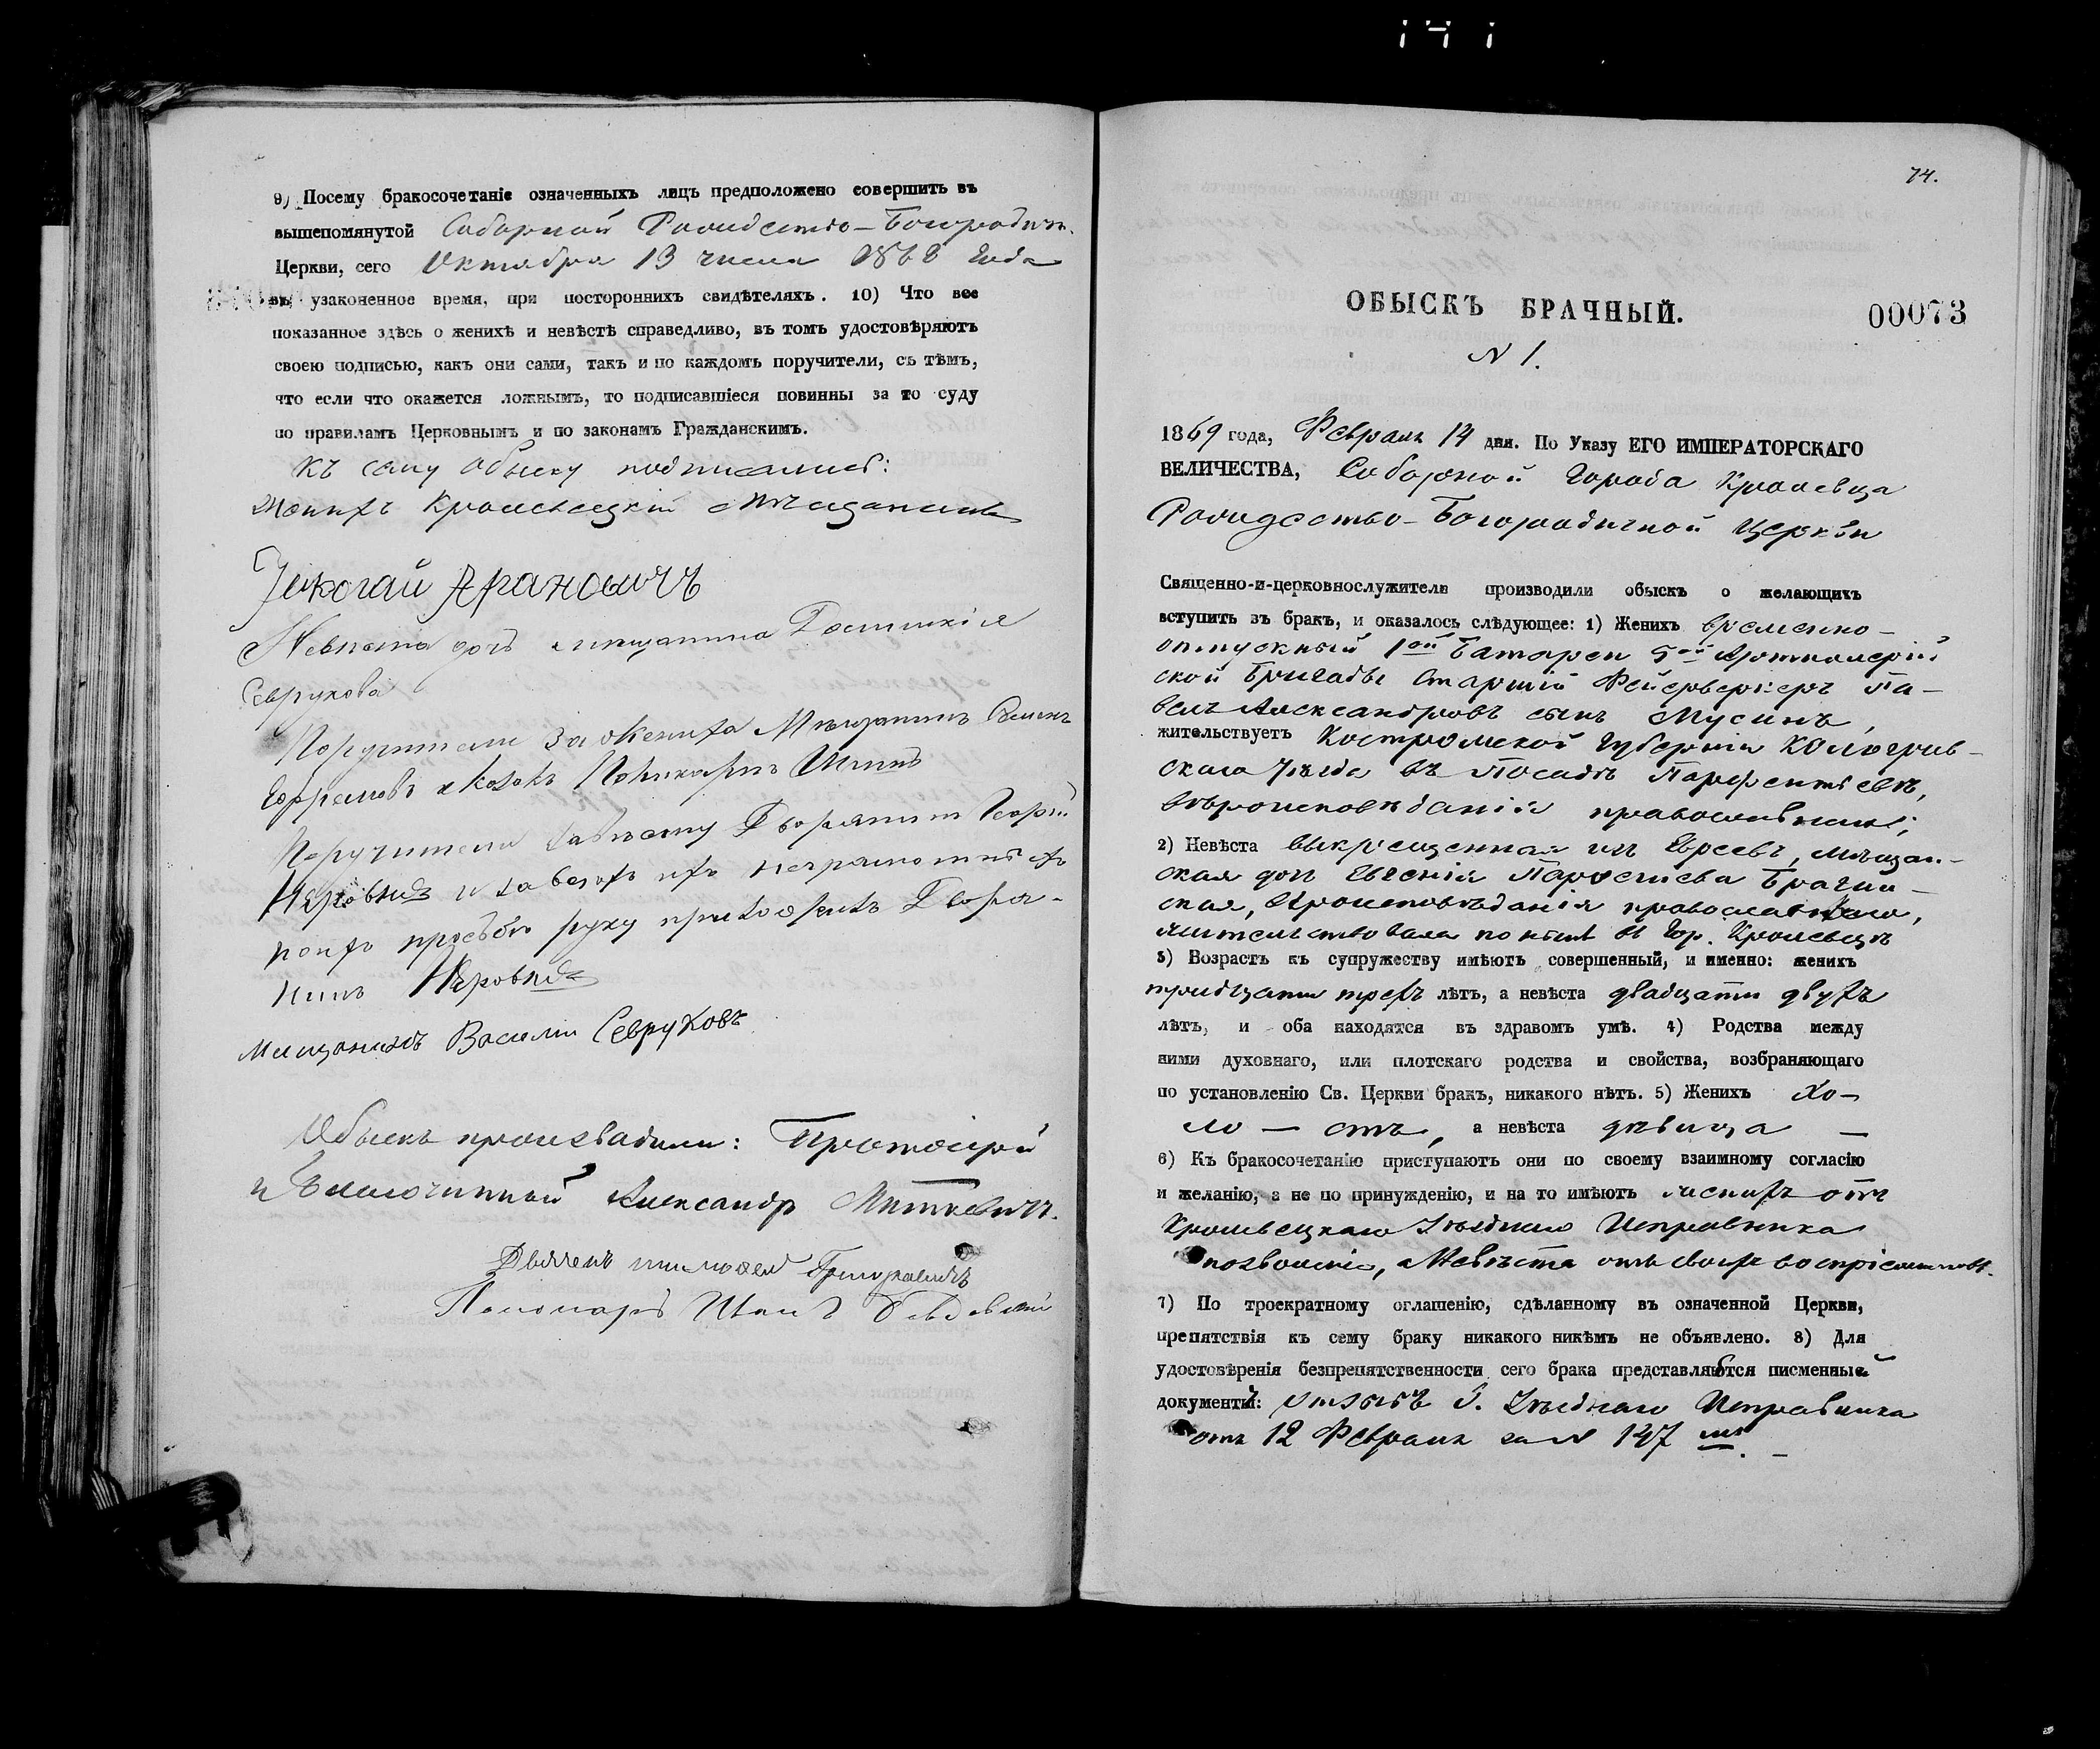 9) Посему бракосочетаніе означенныхъ лицъ предположено совершить въ
вышепомянутой Соборной Рождество-Богородичн.
Церкви, сего Октября 13 числа 1868 года
въ узаконенное время, при постороннихъ свидѣтеляхъ. 10) Что все
показанное здѣсь о женихѣ и невѣстѣ справедливо, въ томъ удостовѣряютъ
своею подписью, какъ они сами, такъ и по каждомъ поручители, съ тѣмъ,
что если что окажется ложнымъ, то подписавшіеся повинны за то суду
по правиламъ Церковнымъ и по законамъ Гражданскимъ.
Къ сему обыску подписались:
Женихъ Кролевецкій Мѣщанинъ
Николай Арановичъ
Невѣста дочь мищанина
Севрукова
Поручители За жениха Мѣщанинъ
Ефремовъ Козакъ Поликарпъ
Поручители Дворянинъ
неграмотныхъ
просьбою руку приложилъ Дворя-
нинъ
Мищанинъ Василий Севруковъ
Обыскъ производили: Протоіерей
и Благочинный Александръ Миткевичъ.
Дьячекъ Тимофей Григоровичъ
Пономарь Иванъ
74.
ОБЫСКЪ БРАЧНЫЙ.
00073
N 1.
1869 года, Февраля 14 дня. По Указу ЕГО ИМПЕРАТОРСКАГО
ВЕЛИЧЕСТВА, Соборной города Кролевца
Рождество-Богородичной Церкви
Священно-и-церковнослужители производили обыскъ о желающихъ
вступить въ бракъ, и оказалось слѣдующее: 1) Женихъ временно-
отпускный 1ой Батареи 5ой Артиллерій
ской Бригады Старшій Фейерверкеръ Па-
велъ Александровъ сынъ Мусинъ,
жительствуетъ Костромской Губерніи Кологрив-
скаго Уѣзда въ Посадѣ Парфентьевѣ,
вѣроисповѣданія православнаго;
2) Невѣста выкрещенная изъ Евреевъ, мѣщан-
ская дочь Евгенія Брагин-
ская, вѣроисповѣданія православнаго,
жительствовала понынѣ въ гор. Кролевцѣ
3) Возрастъ къ супружеству имѣютъ совершенный, и именно: женихъ
тридцати трехъ лѣтъ, а невѣста двадцати двухъ
лѣтъ, и оба находятся въ здравомъ умѣ. 4) Родства между
ними духовнаго, или плотскаго родства и свойства, возбраняющаго
по установленію Св. Церкви бракъ, никакого нѣтъ. 5) Женихъ хо-
ло — стъ, а невѣста дѣвица —
6) Къ бракосочетанію приступаютъ они по своему взаимному согласію
и желанію, а не по принужденію, и на то имѣютъ женихъ отъ
Кролевецкаго Уѣзднаго Исправника
позволеніе, а Невѣста отъ своихъ воспріемниковъ.
7) По троекратному оглашенію, сдѣланному въ означенной Церкви,
препятствія къ сему браку никакого никѣмъ не объявлено. 8) Для
удостовѣренія безпрепятственности сего брака представляется писменный
документъ: отзывъ Г. Уѣзднаго Исправника
отъ 12 Февраля за N 147 мъ. —